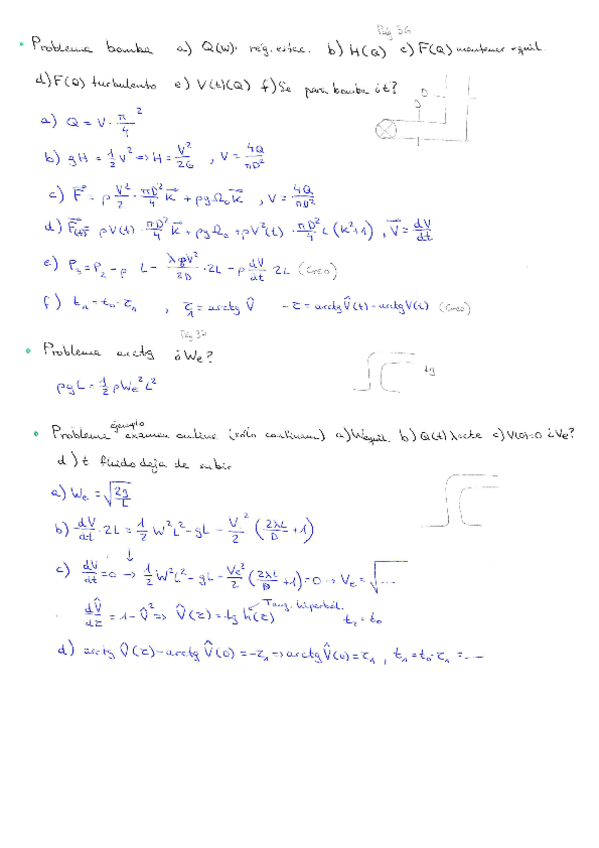 Pág 36
• Problema bomba a) Q(W). rég. estac. b) H(Q) c) F(Q) mantener equil.
d) F(Q) turbulento e) V(t)(Q) f) Se para bomba ¿t?
a) Q = V · π/4 ²
b) gH = 1/2 V² => H = V²/2G , V = 4Q/πD²
c) F⃗ = ρ V²/2 · πD²/4 K⃗ + ρgΩ₀K⃗ , V = 4Q/πD²
d) F⃗(t) = ρV(t) · πD²/4 K⃗ + ρgΩ₂ + ρV²(t) · πD²/4 L (K²+1) , V⃗ = dV/dt
e) P₃ = P₂ - ρ L - λρV²/2D · 2L - ρ dV/dt 2L (Creo)
f) t₁ = t₀ · τ₁ , τ₁ = arctg V̂ - τ = arctg V̂(t) - arctg V(t) (Creo)
Pág 37
• Problema arctg ¿We?
ρgL = 1/2 ρWe²L²
↓g
• Problema ejemplo examen online (sólo continuum) a) Wequil. b) Q(t) λ=cte c) V(0)=0 ¿Ve?
d) t fluido deja de subir
a) We = √(2g/L)
b) dV/dt · 2L = 1/2 W²L² - gL - V²/2 (2λL/D + 1)
↓
c) dV/dt = 0 → 1/2 W²L² - gL - Ve²/2 (2λL/D + 1) = 0 → Ve = √...
Tang. hiperból.
dV̂/dτ = 1 - V̂² => V̂(τ) = tg h(τ) t₂ = t₀
d) arctg V̂(τ) - arctg V̂(0) = -τ₁ => arctg V̂(0) = τ₁ , t₁ = t₀ · τ₁ = ...